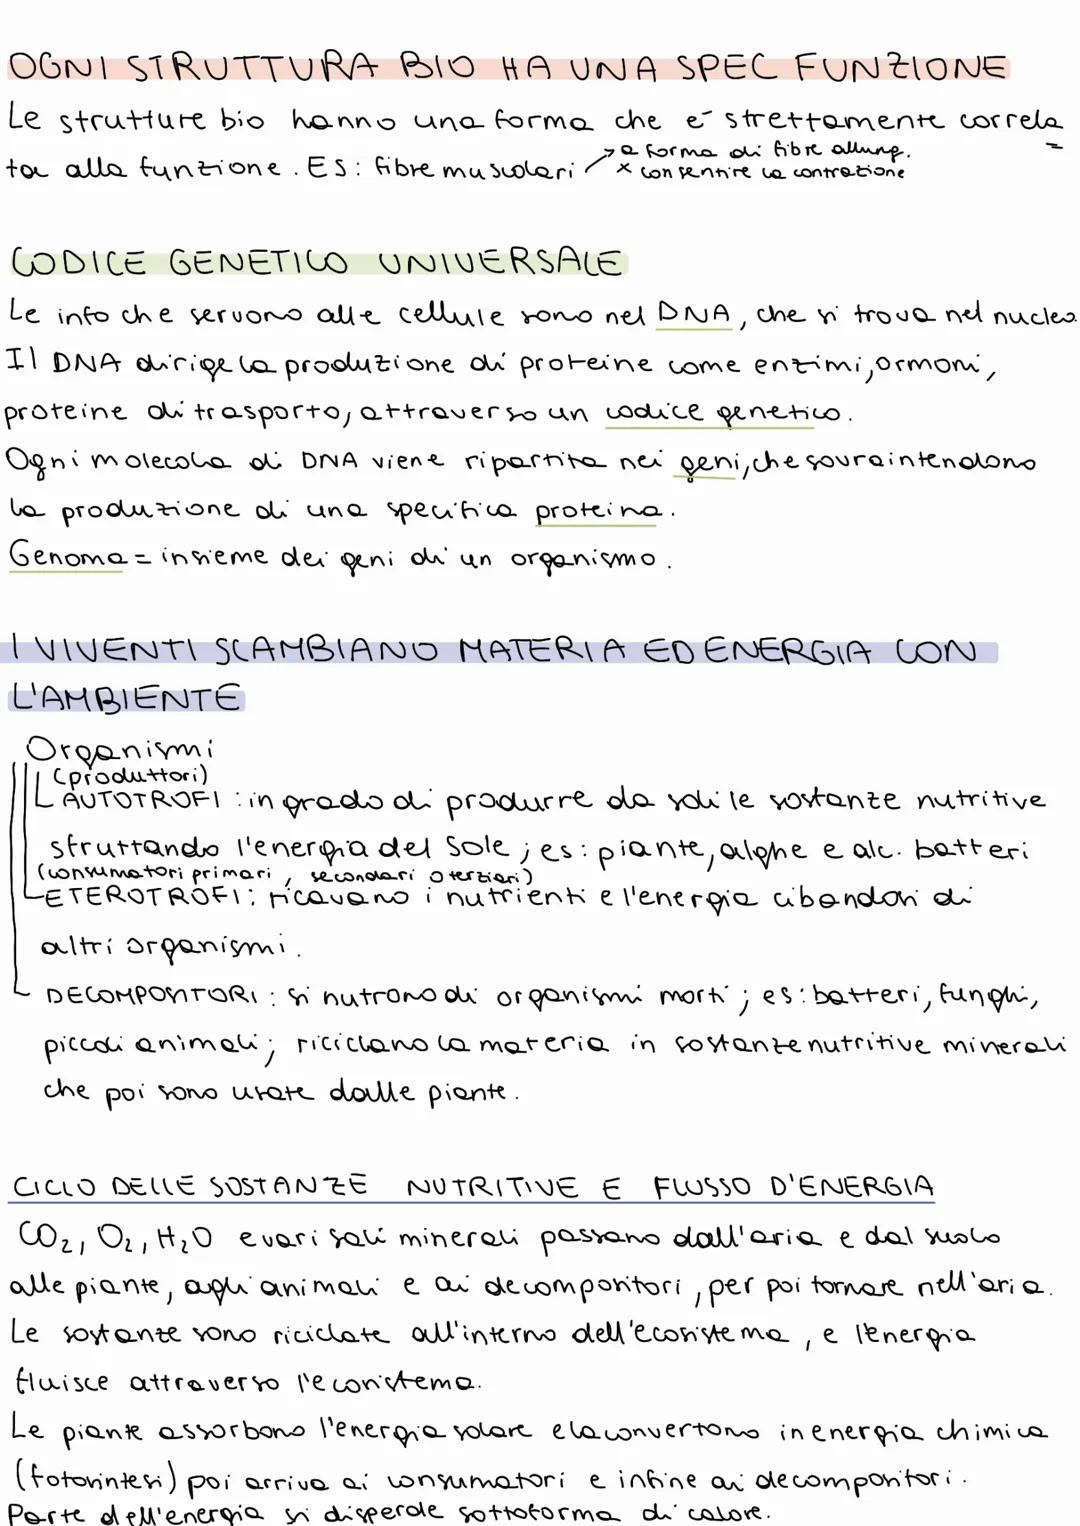 OGNI STRUTTURA BIO HA UNA SPEC FUNZIONE
Le strutture bio hanno una forma che è strettamente correla
ta alla funzione. ES: fibre muscolari → a forma di fibre allung.
x consentire la contrazione
CODICE GENETICO UNIVERSALE
Le info che servono alle cellule sono nel DNA, che si trova nel nucleo.
Il DNA dirige la produzione di proteine come enzimi, ormoni,
proteine di trasporto, attraverso un codice genetico.
Ogni molecola di DNA viene ripartita nei geni, che sovraintendono
la produzione di una specifica proteina.
Genoma = insieme dei geni di un organismo.
I VIVENTI SCAMBIANO MATERIA ED ENERGIA CON
L'AMBIENTE
Organismi
(produttori)
AUTOTROFI : in grado di produrre da soli le sostanze nutritive
sfruttando l'energia del Sole ; es: piante, alghe e alc. batteri
(consumatori primari, secondari o terziari)
ETEROTROFI: ricavano i nutrienti e l'energia cibandosi di
altri organismi.
DECOMPOSITORI : si nutrono di organismi morti ; es: batteri, funghi,
piccoli animali; riciclano la materia in sostanze nutritive minerali
che poi sono usate dalle piante.
CICLO DELLE SOSTANZE NUTRITIVE E FLUSSO D'ENERGIA
CO2, O2, H2O e vari sali minerali passano dall'aria e dal suolo
alle piante, agli animali e ai decompositori, per poi tornare nell'aria.
Le sostanze sono riciclate all'interno dell'ecosistema, e l'energia
fluisce attraverso l'ecosistema.
Le piante assorbono l'energia solare e la convertono in energia chimica
(fotosintesi) poi arriva ai consumatori e infine ai decompositori.
Parte dell'energia si disperde sottoforma di calore.